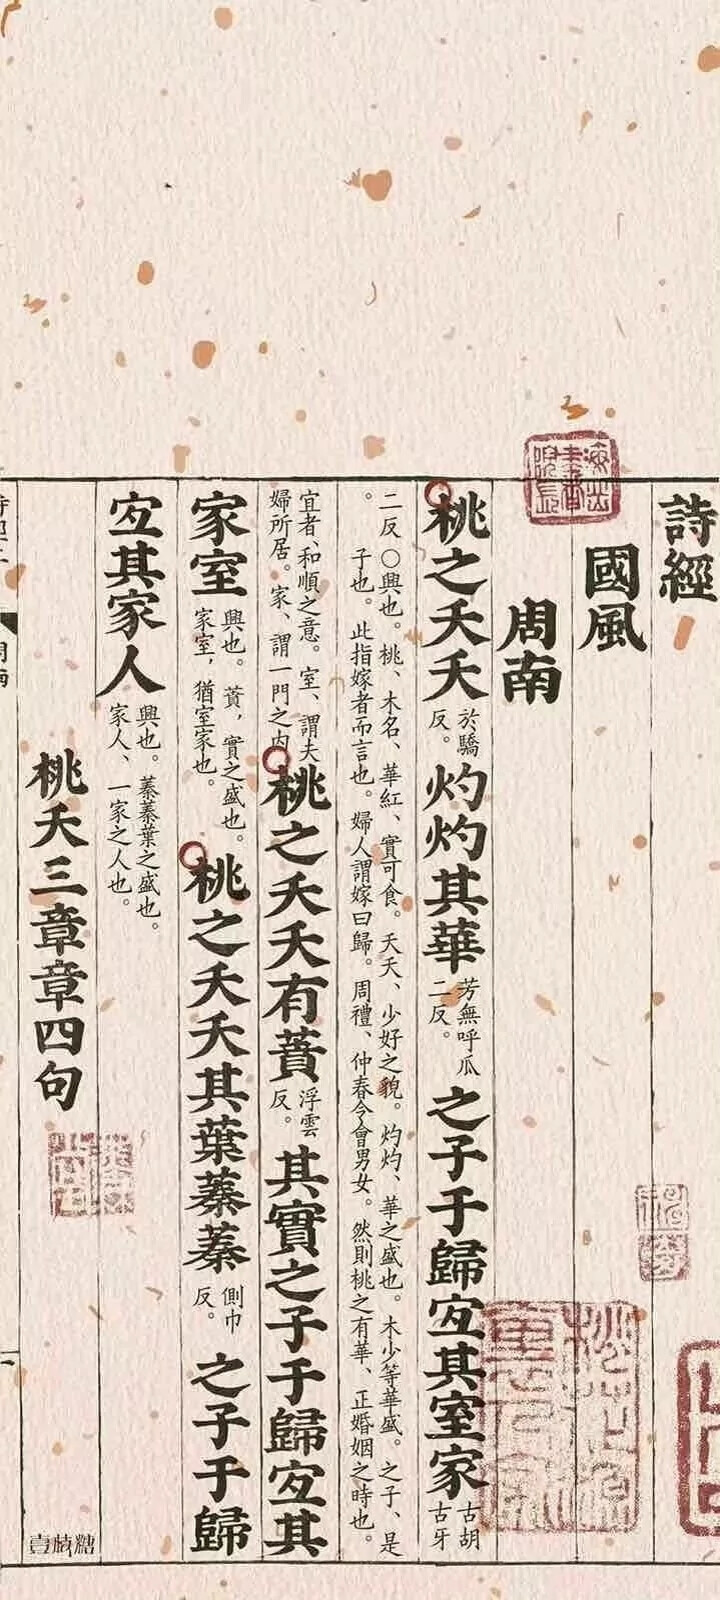 詩經
國風
周南
桃之夭夭
於驕
反。
灼灼其華
芳無呼瓜
二反。
之子于歸宐其室家
古胡
古牙
二反○興也。桃、木名、華紅、實可食。夭夭、少好之貌。灼灼、華之盛也。木少等華盛。之子、是
。子也。此指嫁者而言也。婦人謂嫁曰歸。周禮、仲春令會男女。然則桃之有華、正婚姻之時也。
宜者、和順之意。室、謂夫
婦所居。家、謂一門之内
桃之夭夭有蕡
浮雲
反。
其實之子于歸宐其
家室
興也。蕡，實之盛也。
家室，猶室家也。
桃之夭夭其葉蓁蓁
側巾
反。
之子于歸
宐其家人
興也。蓁蓁葉之盛也。
家人、一家之人也。
桃夭三章章四句